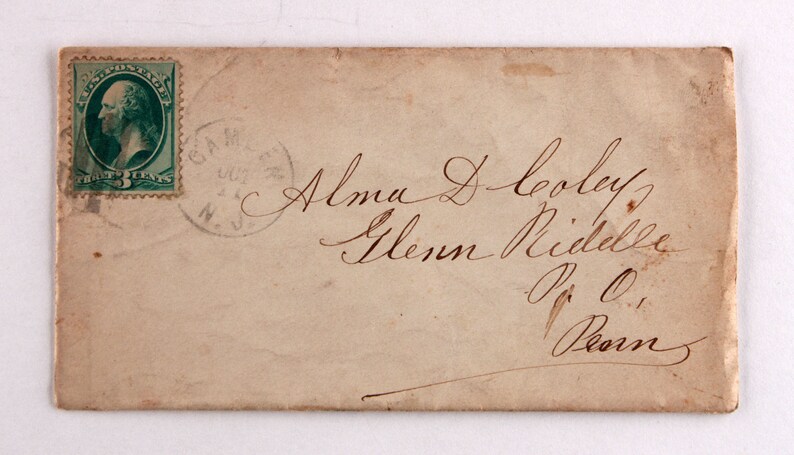 U.S. POSTAGE
3 CENTS
CAMDEN
N.J.
Alma D Coley
Glenn Riddle
P. O.
Penn